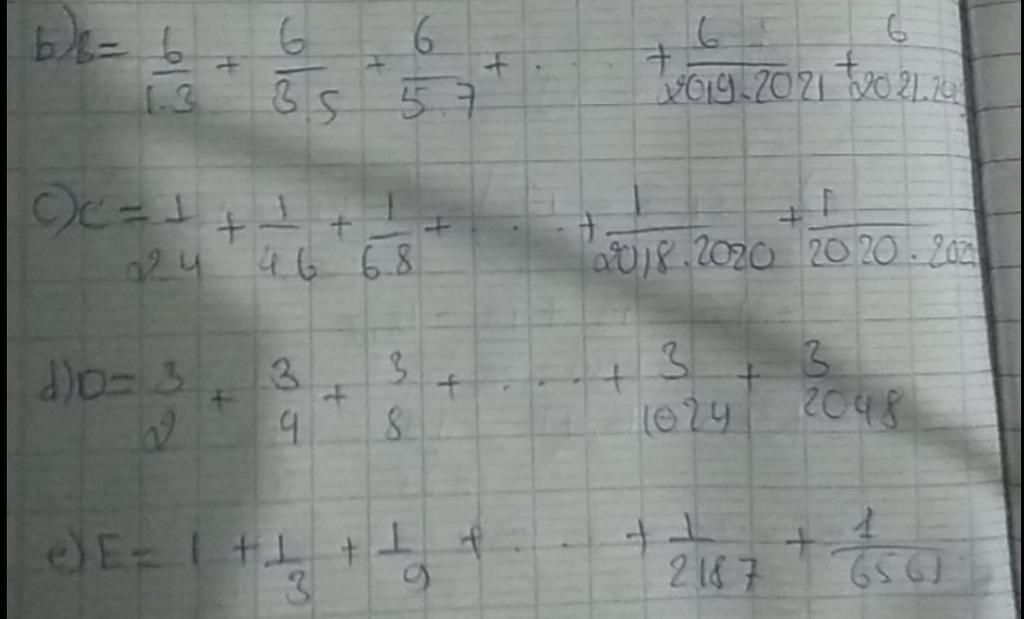 b) B = 6/1.3 + 6/3.5 + 6/5.7 + . . . . + 6/2019.2021 + 6/2021.
c) C = 1/2.4 + 1/4.6 + 1/6.8 + . . . . + 1/2018.2020 + 1/2020.
d) D = 3/2 + 3/4 + 3/8 + . . . . + 3/1024 + 3/2048
e) E = 1 + 1/3 + 1/9 + . . . + 1/2187 + 1/6561